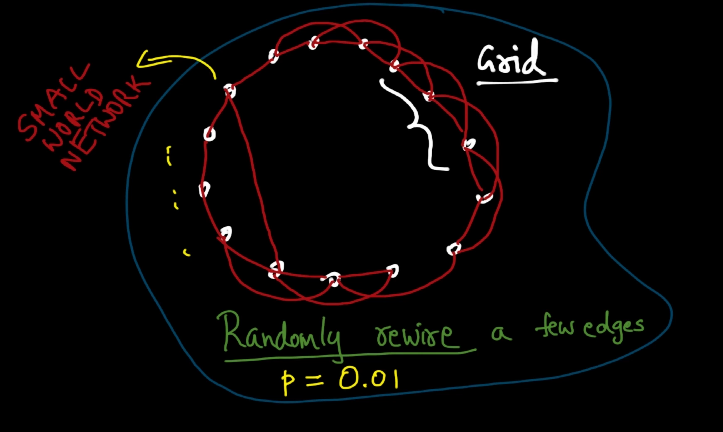 Grid
SMALL
WORLD
NETWORK
Randomly rewire a few edges
p = 0.01